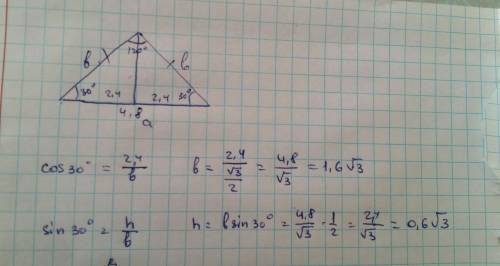 120°
в в
30° 2,4 2,4 30°
4,8
a
cos30° = 2,4/в в = 2,4/(√3/2) = 4,8/√3 = 1,6√3
sin30° = h/в h = в sin30° = 4,8/√3 · 1/2 = 2,4/√3 = 0,6√3